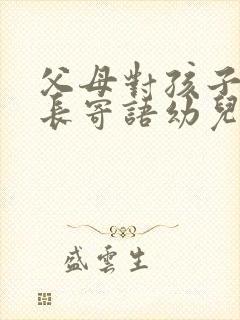 父母對孩子
長寄語幼兒
盛雲生